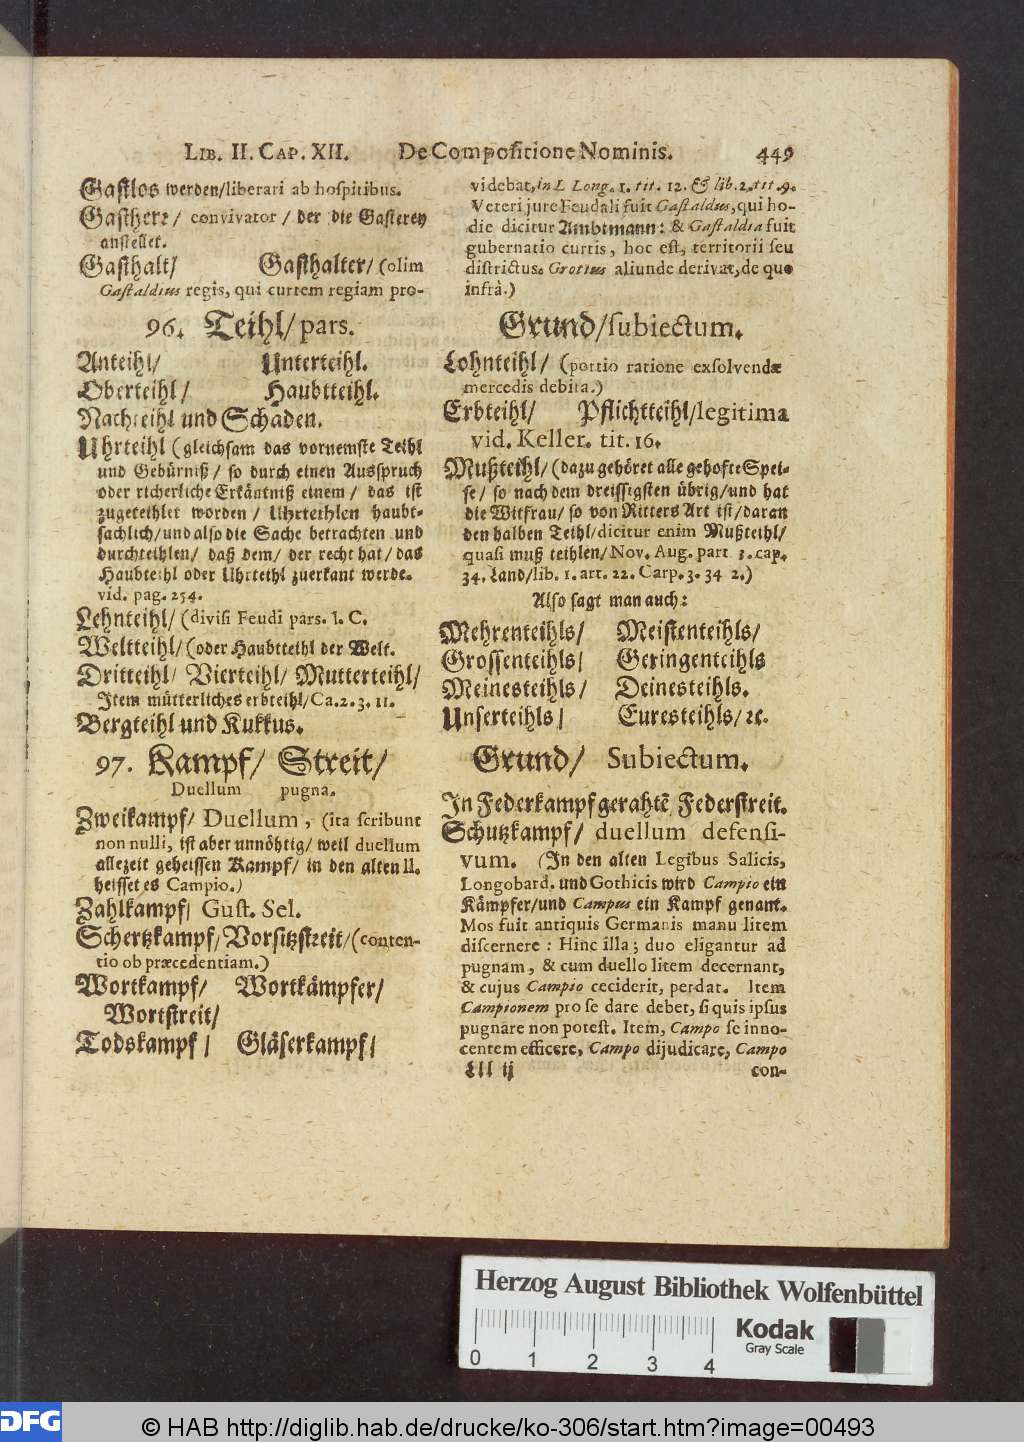 LIB. II. CAP. XII. De Compositione Nominis. 449
Gastlos werden/liberari ab hospitibus.
Gastherr/ convivator/ der die Gasterey
anstellet.
Gasthalt/ Gasthalter/ (olim
Gastaldius regis, qui curtem regiam pro-
videbat, in L Long. 1. tit. 12. & lib. 2. tit. 9.
Veteri jure Feudali fuit Gastaldus, qui ho-
die dicitur Ambtmann: & Gastaldia fuit
gubernatio curtis, hoc est, territorii seu
districtus. Grotius aliunde derivat, de quo
infrà.)
96. Teihl/ pars. Grund/subiectum.
Anteihl/ Unterteihl.
Oberteihl/ Haubtteihl.
Nachteihl und Schaden.
Uhrteihl (gleichsam das vornemste Teihl
und Gebürniß/ so durch einen Ausspruch
oder richerliche Erkäntniß einem/ das ist
zugeteihlet worden/ Uhrteihlen haubt-
sachlich/und also die Sache betrachten und
durchteihlen/ daß dem/ der recht hat/das
Haubteihl oder Uhrteihl zuerkant werde.
vid. pag. 254.
Lehnteihl/ (divisi Feudi pars. 1. C.
Weltteihl/ (oder Haubtteihl der Welt.
Dritteihl/ Vierteihl/ Mutterteihl/
Item mütterliches erbteihl/Ca. 2. 3. 11.
Bergteihl und Kukkus.
Lohnteihl/ (portio ratione exsolvendæ
mercedis debita.)
Erbteihl/ Pflichtteihl/legitima
vid. Keller. tit. 16.
Mußteihl/ (dazu gehöret alle gehofte Spei-
se/ so nach dem dreissigsten übrig/und hat
die Witfrau/ so von Ritters Art ist/daran
den halben Teihl/dicitur enim Mußteihl/
quasi muß teihlen/Nov. Aug. part 3. cap.
34. Land/lib. 1. art. 22. Carp. 3. 34 2.)
Also sagt man auch:
Mehrenteihls/ Meistenteihls/
Grossenteihls/ Geringenteihls
Meinesteihls/ Deinesteihls.
Unserteihls/ Euresteihls/ ꝛc.
97. Kampf/ Streit/ Grund/ Subiectum.
Duellum pugna.
Zweikampf/ Duellum, (ita scribunt
non nulli, ist aber unnöhtig/ weil duellum
allezeit geheissen Kampf/ in den alten ll.
heisset es Campio.)
Zahlkampf/ Gust. Sel.
Schertzkampf/ Vorsitzstreit/ (conten-
tio ob præcedentiam.)
Wortkampf/ Wortkämpfer/
Wortstreit/
Todskampf/ Gläserkampf/
In Federkampf gerahtē Federstreit.
Schutzkampf/ duellum defensi-
vum. (In den alten Legibus Salicis,
Longobard. und Gothicis wird Campio ein
Kämpfer/und Campus ein Kampf genant.
Mos fuit antiquis Germanis manu litem
discernere: Hinc illa; duo eligantur ad
pugnam, & cum duello litem decernant,
& cujus Campio ceciderit, perdat. Item
Campionem pro se dare debet, si quis ipsus
pugnare non potest. Item, Campo se inno-
centem efficere, Campo dijudicare, Campo
Lll ij con-
Herzog August Bibliothek Wolfenbüttel
0 1 2 3 4
Kodak
Gray Scale
DFG
© HAB http://diglib.hab.de/drucke/ko-306/start.htm?image=00493